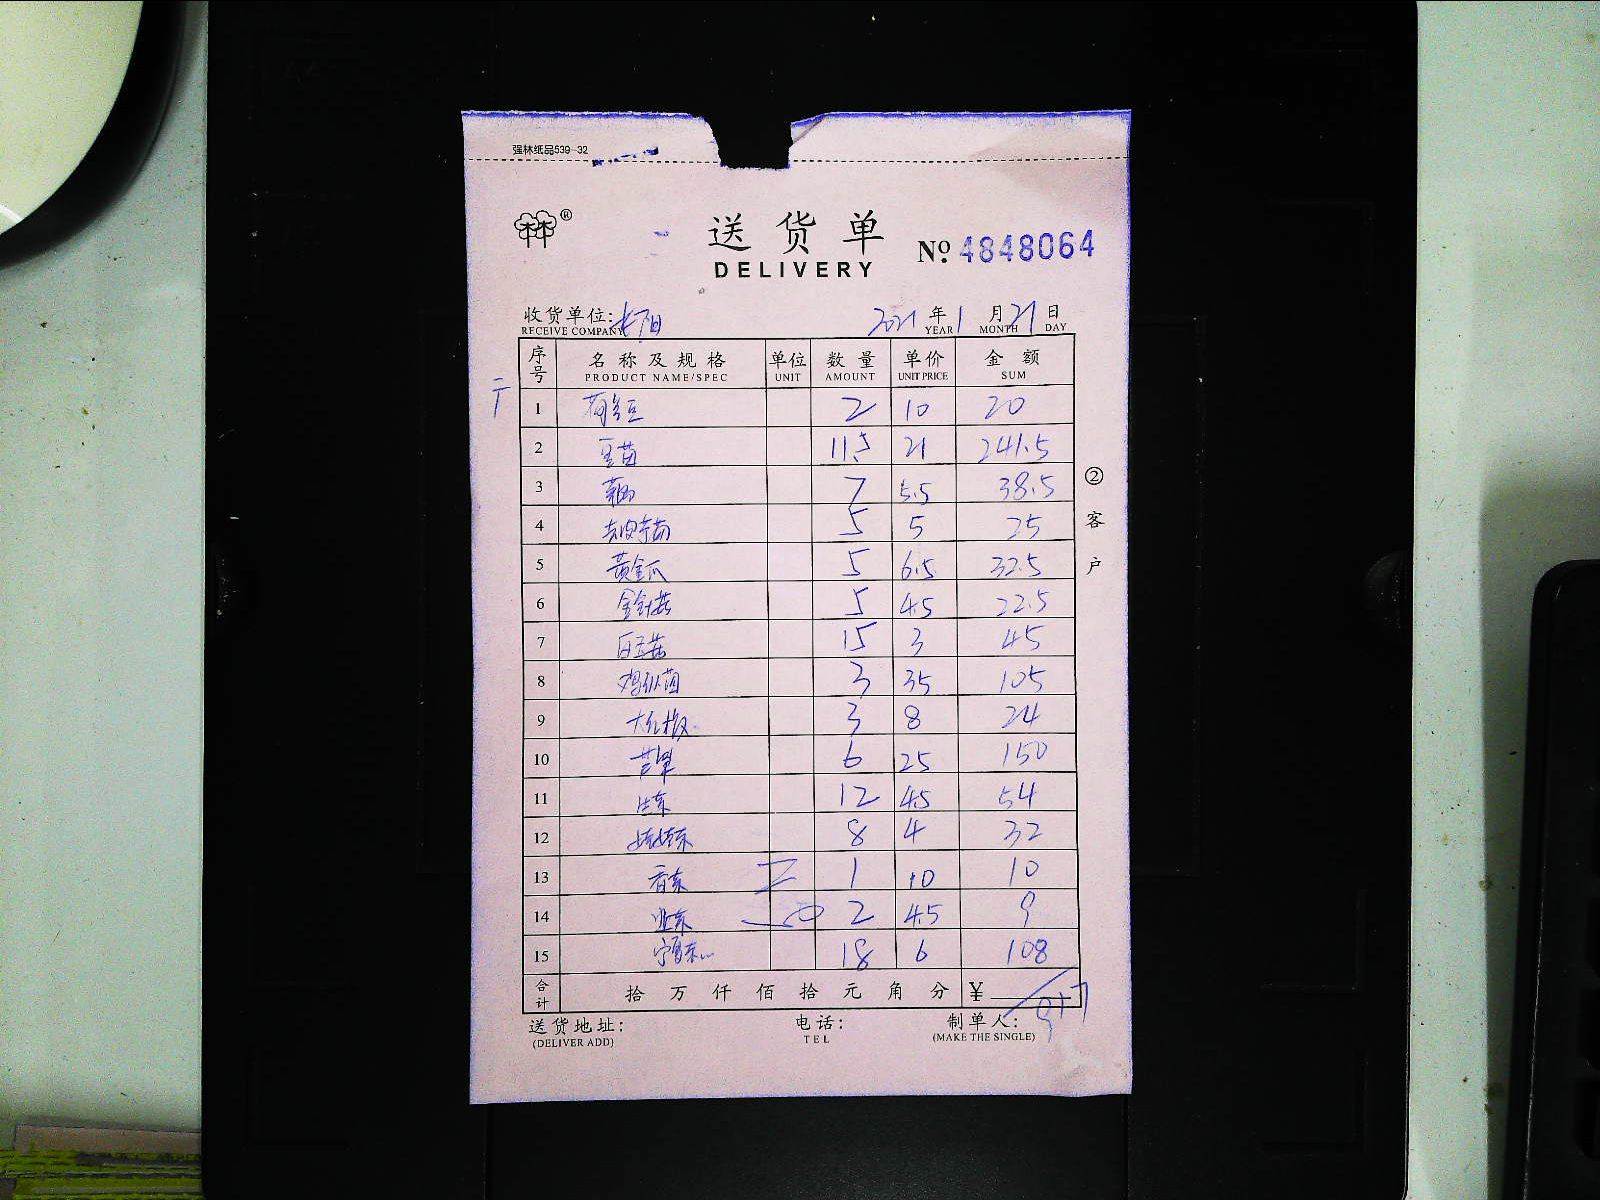 强林纸品539-32
林林®
送货单 No 4848064
DELIVERY
收货单位: 2021年1月21日
RECEIVE COMPANY YEAR MONTH DAY
序号 名称及规格 单位 数量 单价 金额
PRODUCT NAME/SPEC UNIT AMOUNT UNIT PRICE SUM
1 荷兰豆 2 10 20
2 豆苗 11.5 21 241.5
3 7 5.5 38.5
4 5 5 25
5 黄金瓜 5 6.5 32.5
6 金针菇 5 4.5 22.5
7 白玉菇 15 3 45
8 鸡枞菌 3 35 105
9 大红椒 3 8 24
10 苦果 6 25 150
11 生菜 12 4.5 54
12 娃娃菜 8 4 32
13 香菜 1 10 10
14 2 4.5 9
15 18 6 108
合计 拾万仟佰拾元角分 ¥ 917
②客户
送货地址: 电话: 制单人:
(DELIVER ADD) TEL (MAKE THE SINGLE)